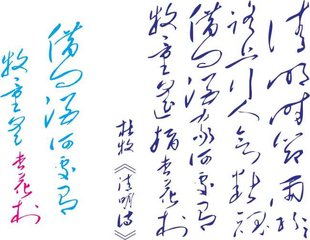 清明时节雨纷纷
路上行人欲断魂
借问酒家何处有
牧童遥指杏花村
杜牧《清明诗》
借问酒何处有
牧童
杏花村